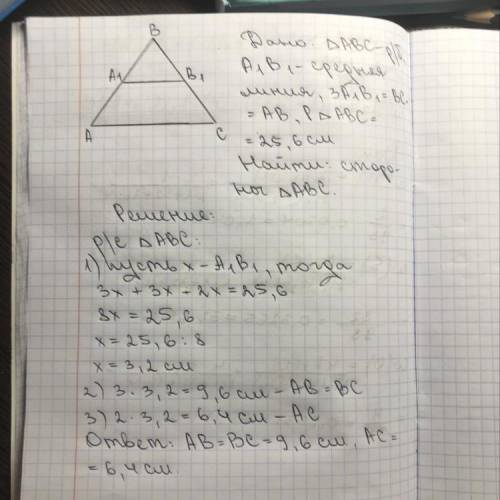 B
A1
B1
A
C
Дано: △ABC – р/б
A1B1 – средняя
линия, 3A1B1 = BC =
= AB, P△ABC =
= 25,6 см
Найти: сторо-
ны △ABC.
Решение:
р/с △ABC:
1) пусть x – A1B1, тогда
3x + 3x - 2x = 25,6
8x = 25,6
x = 25,6 : 8
x = 3,2 см
2) 3 · 3,2 = 9,6 см – AB = BC
3) 2 · 3,2 = 6,4 см – AC
Ответ: AB = BC = 9,6 см, AC =
= 6,4 см